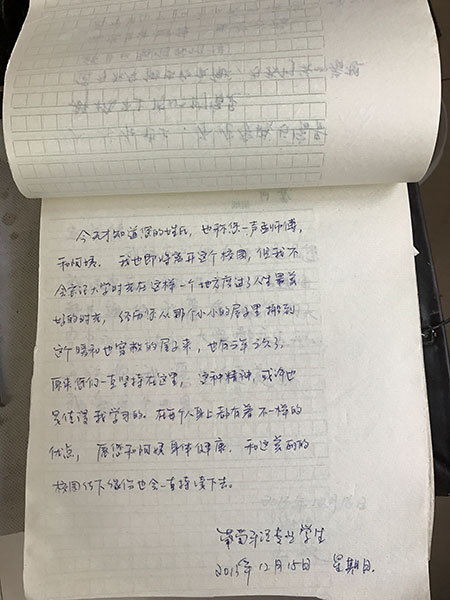 今天才知道您的姓氏，也称您一声孟师傅，
和阿姨。我也即将离开这个校园，但我不
会忘记大学时光在这样一个地方度过了人生最美
好的时光，经历你从那个小小的屋子里搬到
这个暖和也宽敞的屋子来，也有三年之久了，
原来你们一直坚持在这里，这种精神，或许也
是值得我学习的。在每个人身上都有着不一样的
优点，愿您和阿姨身体健康，和这美丽的
校园
也会一直持续下去。
学生
2015年12月15日 星期日